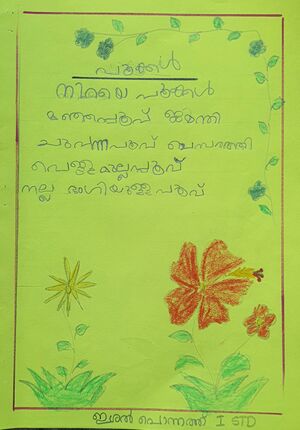 പൂക്കൾ
നിറയെ പൂക്കൾ
മഞ്ഞപ്പൂവ് ജമന്തി
ചുവന്നപൂവ് ചെമ്പരത്തി
വെള്ളമുല്ലപ്പൂവ്
നല്ല ഭംഗിയുള്ളപൂവ്
ഇശൽ പൊന്നത്ത് I STD